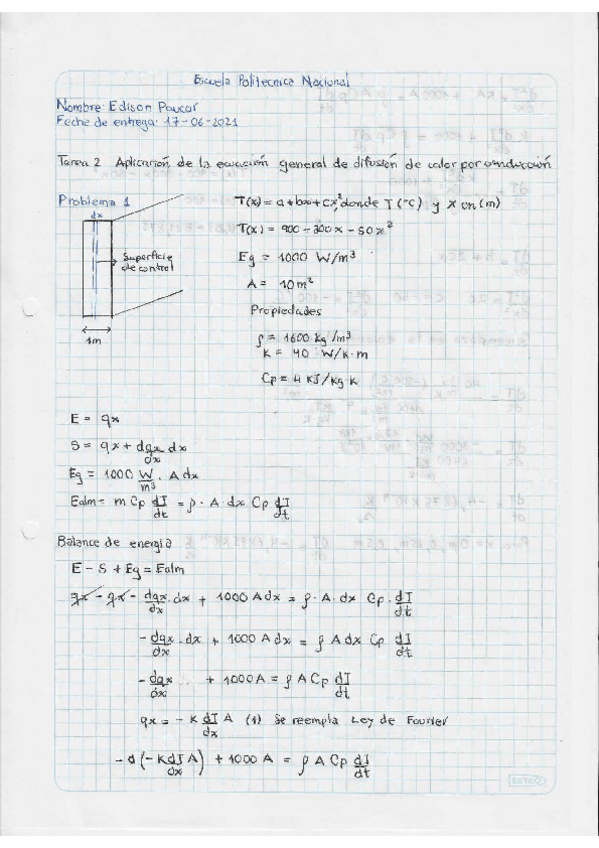 Escuela Politecnica Nacional
Nombre: Edison Paucar
Fecha de entrega: 17-06-2021
Tarea 2 Aplicación de la ecuación general de difusión de calor por conducción
Problema 1
dx
Superficie
de control
1m
T(x) = a + bx + cx², donde T (°C) y x en (m)
T(x) = 900 - 300x - 50x²
Eg = 1000 W/m³
A = 10m²
Propiedades
ρ = 1600 kg/m³
K = 40 W/k·m
Cp = 4 KJ/kg·K
E = qx
S = qx + dqx/dx dx
Eg = 1000 W/m³ . A dx
Ealm = m Cp dT/dt = ρ · A · dx Cp dT/dt
Balance de energia
E - S + Eg = Ealm
qx - qx - dqx/dx · dx + 1000 A dx = ρ · A · dx Cp · dT/dt
- dqx/dx · dx + 1000 A dx = ρ A dx Cp dT/dt
- dqx/dx + 1000 A = ρ A Cp dT/dt
qx = - K dT/dx A (1) Se reempla Ley de Fourier
- d (-K dT/dx A) + 1000 A = ρ A Cp dT/dt